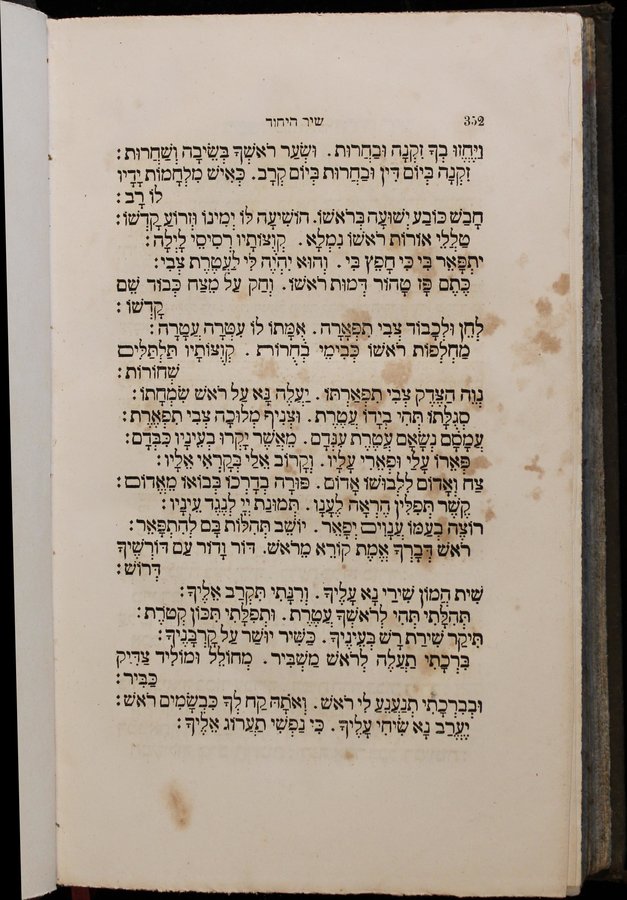 352 שיר היחוד
וַיֶּחֱזוּ בְךָ זִקְנָה וּבַחֲרוּת. וּשְׂעַר רֹאשְׁךָ בְּשֵׂיבָה וְשַׁחֲרוּת:
זִקְנָה בְּיוֹם דִּין וּבַחֲרוּת בְּיוֹם קְרָב. כְּאִישׁ מִלְחָמוֹת יָדָיו
לוֹ רָב:
חָבַשׁ כּוֹבַע יְשׁוּעָה בְּרֹאשׁוֹ. הוֹשִׁיעָה לּוֹ יְמִינוֹ וּזְרוֹעַ קָדְשׁוֹ:
טַלְלֵי אוֹרוֹת רֹאשׁוֹ נִמְלָא. קְוֻצּוֹתָיו רְסִיסֵי לָיְלָה:
יִתְפָּאֵר בִּי כִּי חָפֵץ בִּי. וְהוּא יִהְיֶה לִּי לַעֲטֶרֶת צְבִי:
כֶּתֶם פָּז טָהוֹר דְּמוּת רֹאשׁוֹ. וְחַק עַל מֵצַח כְּבוֹד שֵׁם
קָדְשׁוֹ:
לְחֵן וּלְכָבוֹד צְבִי תִפְאָרָה. אֻמָּתוֹ לוֹ עִטְּרָה עֲטָרָה:
מַחְלְפוֹת רֹאשׁוֹ כְּבִימֵי בְחֻרוֹת. קְוֻצּוֹתָיו תַּלְתַּלִּים
שְׁחוֹרוֹת:
נְוֵה הַצֶּדֶק צְבִי תִפְאַרְתּוֹ. יַעֲלֶה נָּא עַל רֹאשׁ שִׂמְחָתוֹ:
סְגֻלָּתוֹ תְּהִי בְיָדוֹ עֲטֶרֶת. וּצְנִיף מְלוּכָה צְבִי תִפְאֶרֶת:
עֲמֻסִים נְשָׂאָם עֲטֶרֶת עִנְּדָם. מֵאֲשֶׁר יָקְרוּ בְעֵינָיו כִּבְּדָם:
פְּאֵרוֹ עָלַי וּפְאֵרִי עָלָיו. וְקָרוֹב אֵלַי בְּקָרְאִי אֵלָיו:
צַח וְאָדוֹם לִלְבוּשׁוֹ אָדוֹם. פּוּרָה בְדָרְכוֹ בְּבוֹאוֹ מֵאֱדוֹם:
קֶשֶׁר תְּפִלִּין הֶרְאָה לֶעָנָו. תְּמוּנַת יְיָ לְנֶגֶד עֵינָיו:
רוֹצֶה בְעַמּוֹ עֲנָוִים יְפָאֵר. יוֹשֵׁב תְּהִלּוֹת בָּם לְהִתְפָּאֵר:
רֹאשׁ דְּבָרְךָ אֱמֶת קוֹרֵא מֵרֹאשׁ. דּוֹר וָדוֹר עַם דּוֹרֶשְׁךָ
דְּרוֹשׁ:
שִׁית הֲמוֹן שִׁירַי נָא עָלֶיךָ. וְרִנָּתִי תִּקְרַב אֵלֶיךָ:
תְּהִלָּתִי תְּהִי לְרֹאשְׁךָ עֲטֶרֶת. וּתְפִלָּתִי תִּכּוֹן קְטֹרֶת:
תִּיקַר שִׁירַת רָשׁ בְּעֵינֶיךָ. כַּשִּׁיר יוּשַׁר עַל קָרְבָּנֶיךָ:
בִּרְכָתִי תַעֲלֶה לְרֹאשׁ מַשְׁבִּיר. מְחוֹלֵל וּמוֹלִיד צַדִּיק
כַּבִּיר:
וּבְבִרְכָתִי תְנַעֲנַע לִי רֹאשׁ. וְאוֹתָהּ קַח לְךָ כִּבְשָׂמִים רֹאשׁ:
יֶעֱרַב נָא שִׂיחִי עָלֶיךָ. כִּי נַפְשִׁי תַעֲרוֹג אֵלֶיךָ: